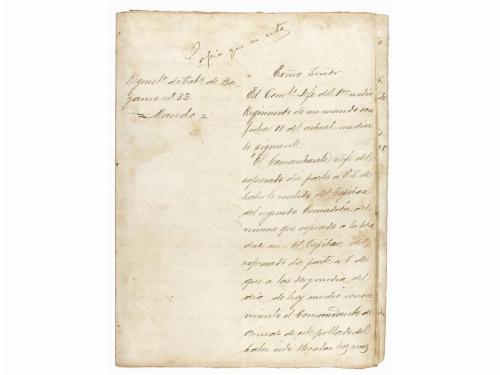 Copia que se cita
Regimto. de Cabª. de Ba
yamo nº 33
= Mando =
Exmo Señor
El Comte. Jefe del 1er medio
Regimiento de mi mando con
fecha 10 del actual me dice
lo siguiente
"El Comandante Jefe del
espresado da parte a V.E. de
haber recibido del Capitan
del segundo Escuadrón del
mismo que copiado a la letra
dice asi = El Capitan del
espresado da parte a V. de
que a las dos y media del
dia de hoy me dió conoci
miento el Comandante de
Armas de este poblado del
haber sido